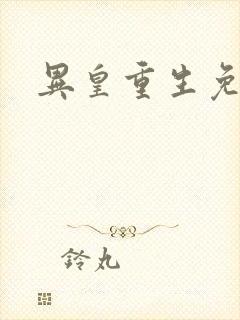 異皇重生免
鈴丸